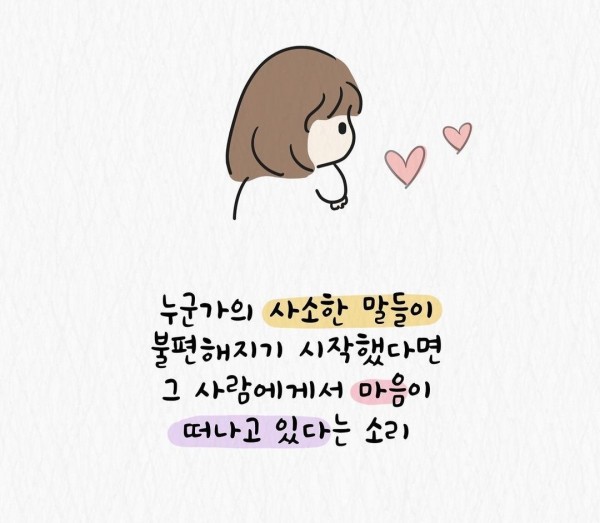 누군가의 사소한 말들이
불편해지기 시작했다면
그 사람에게서 마음이
떠나고 있다는 소리